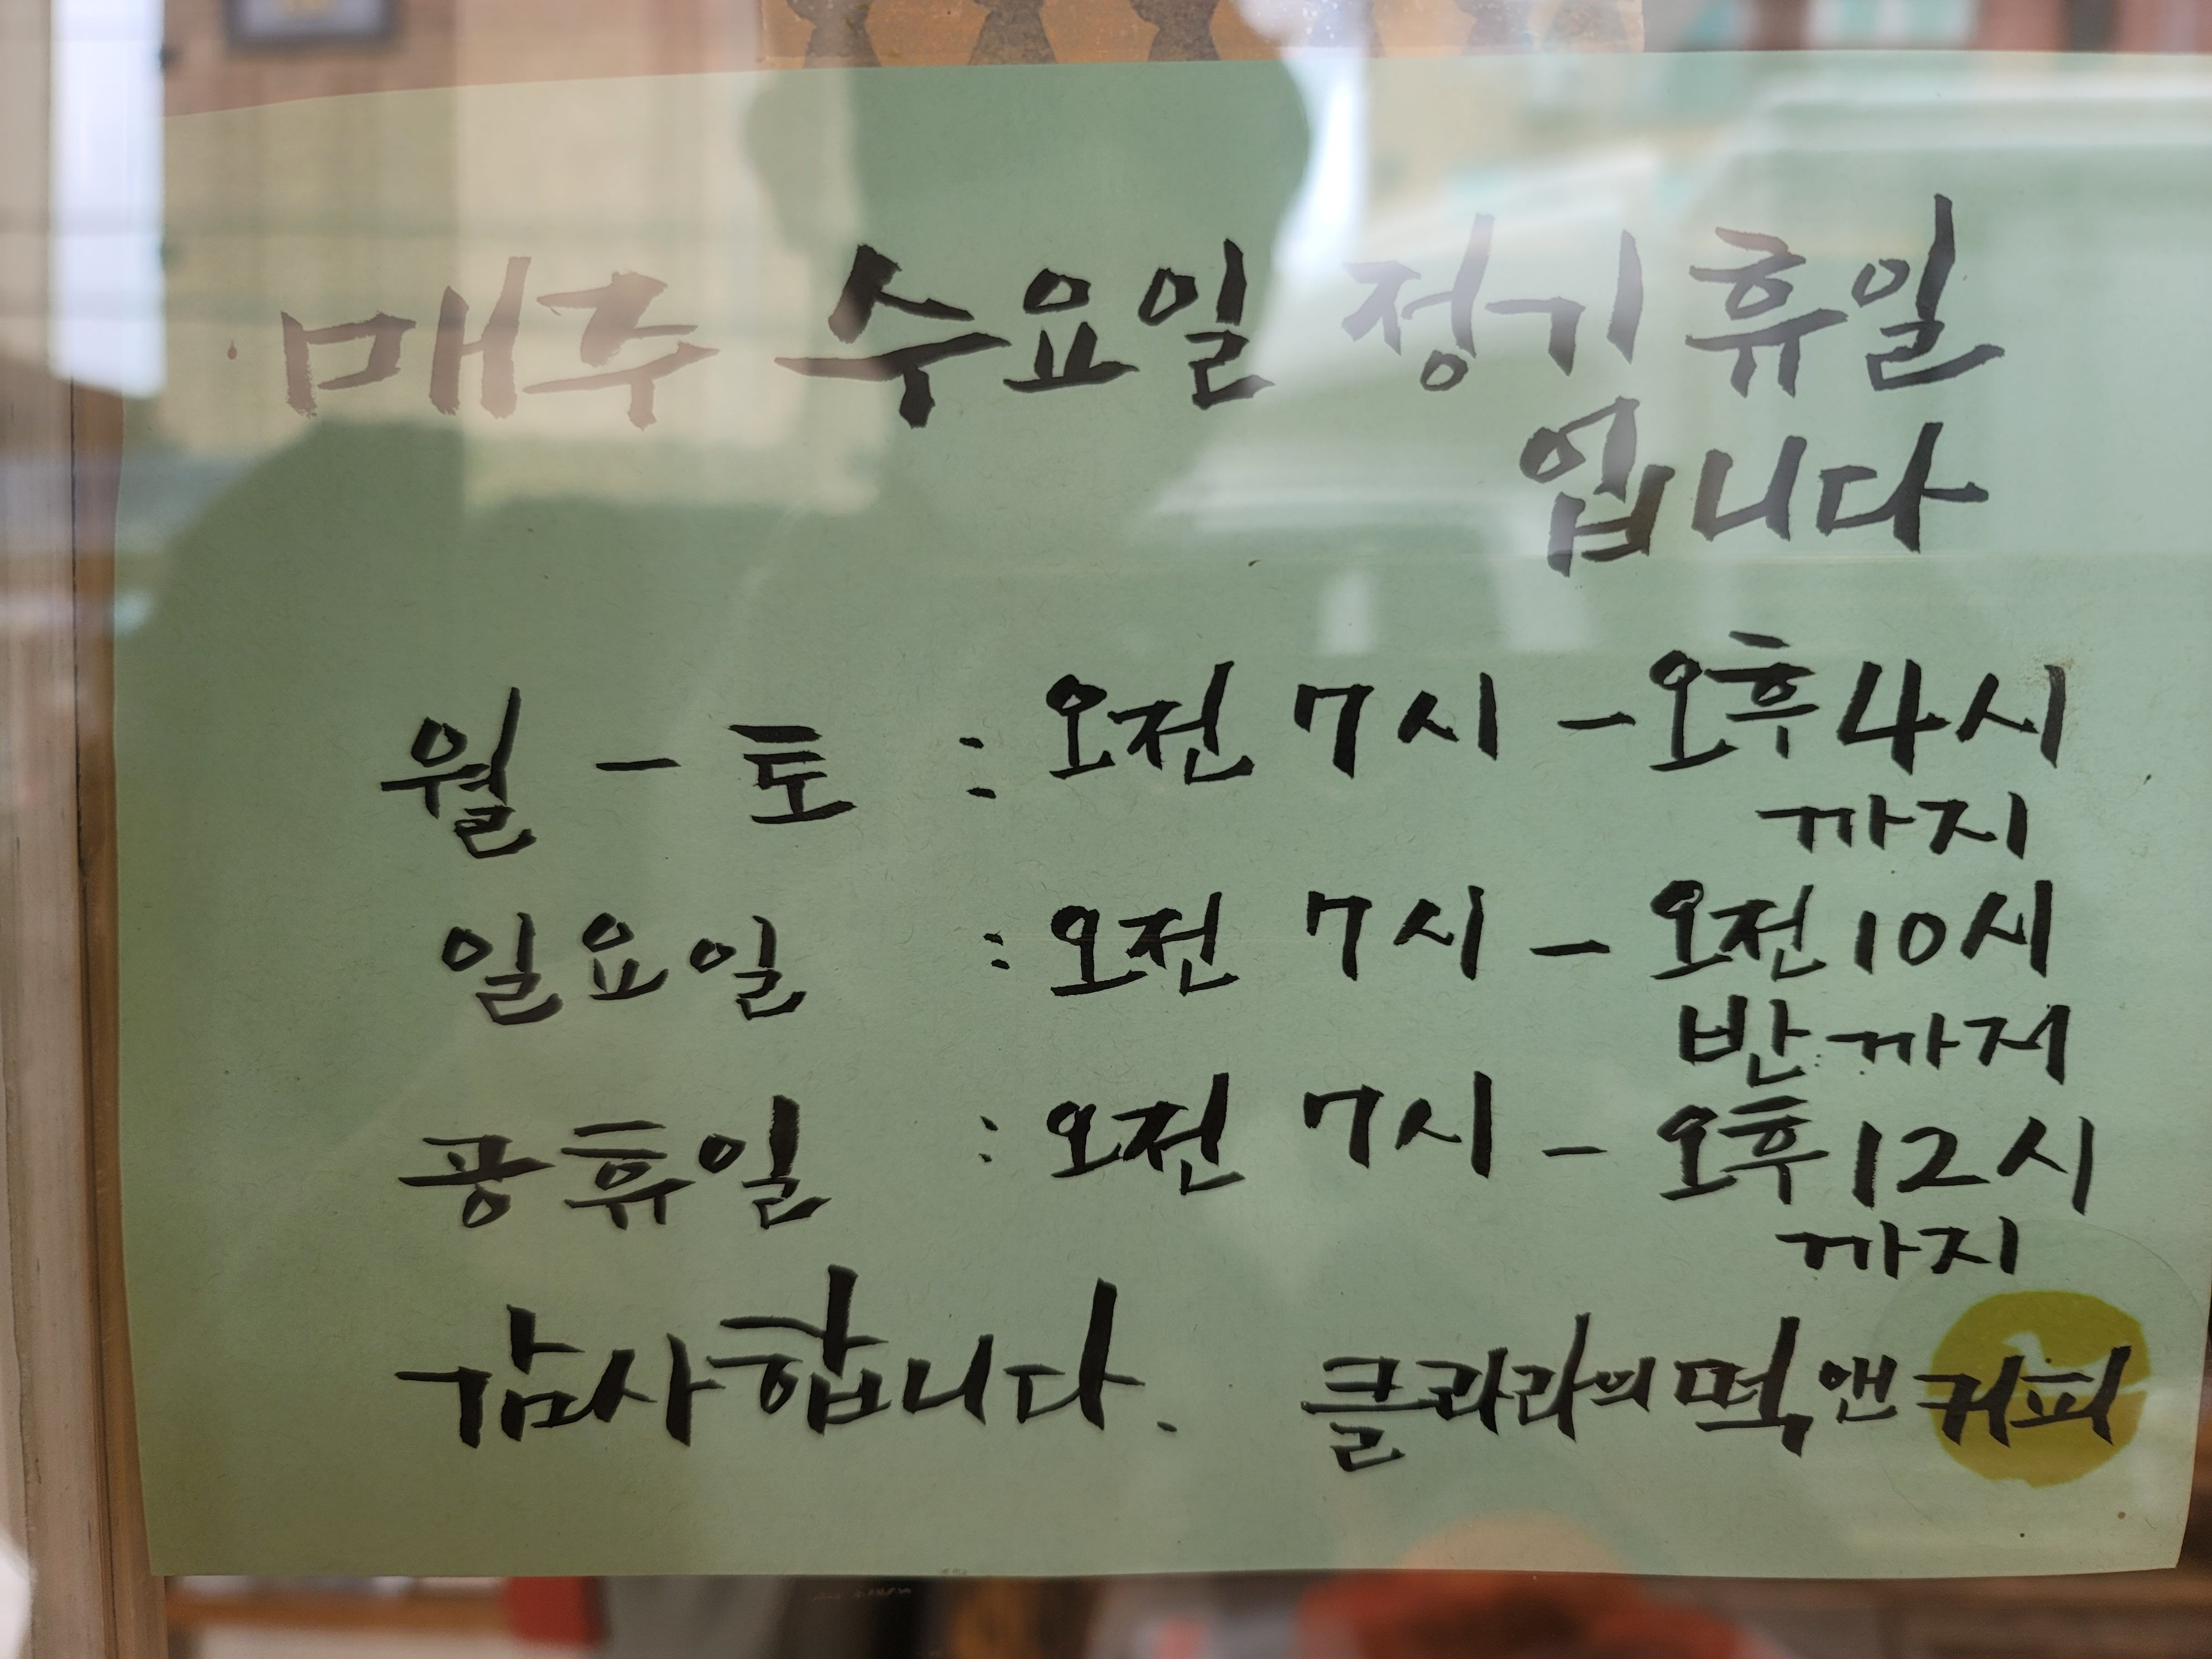 매주 수요일 정기휴일
입니다
월 - 토 : 오전 7시 - 오후 4시
까지
일요일 : 오전 7시 - 오전 10시
반까지
공휴일 : 오전 7시 - 오후 12시
까지
감사합니다. 클라라의 떡 앤 커피